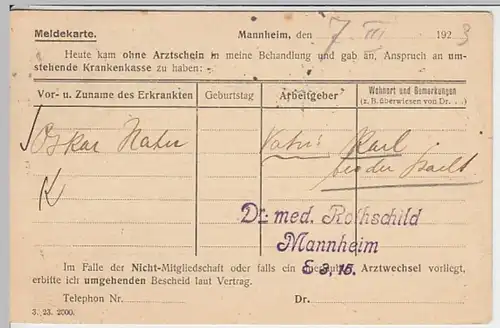 Meldekarte. Mannheim, den 7 III 1923
Heute kam ohne Arztschein in meine Behandlung und gab an, Anspruch an um-
stehende Krankenkasse zu haben:
Vor- u. Zuname des Erkrankten Geburtstag Arbeitgeber Wohnort und Bemerkungen
(z. B. überwiesen von Dr. . . .)
Oskar Vater: Karl
bei der
Dr. med. Rothschild
Mannheim
3, 15.
Im Falle der Nicht-Mitgliedschaft oder falls ein Arztwechsel vorliegt,
erbitte ich umgehenden Bescheid laut Vertrag.
Telephon Nr. Dr.
3. 23. 2000.